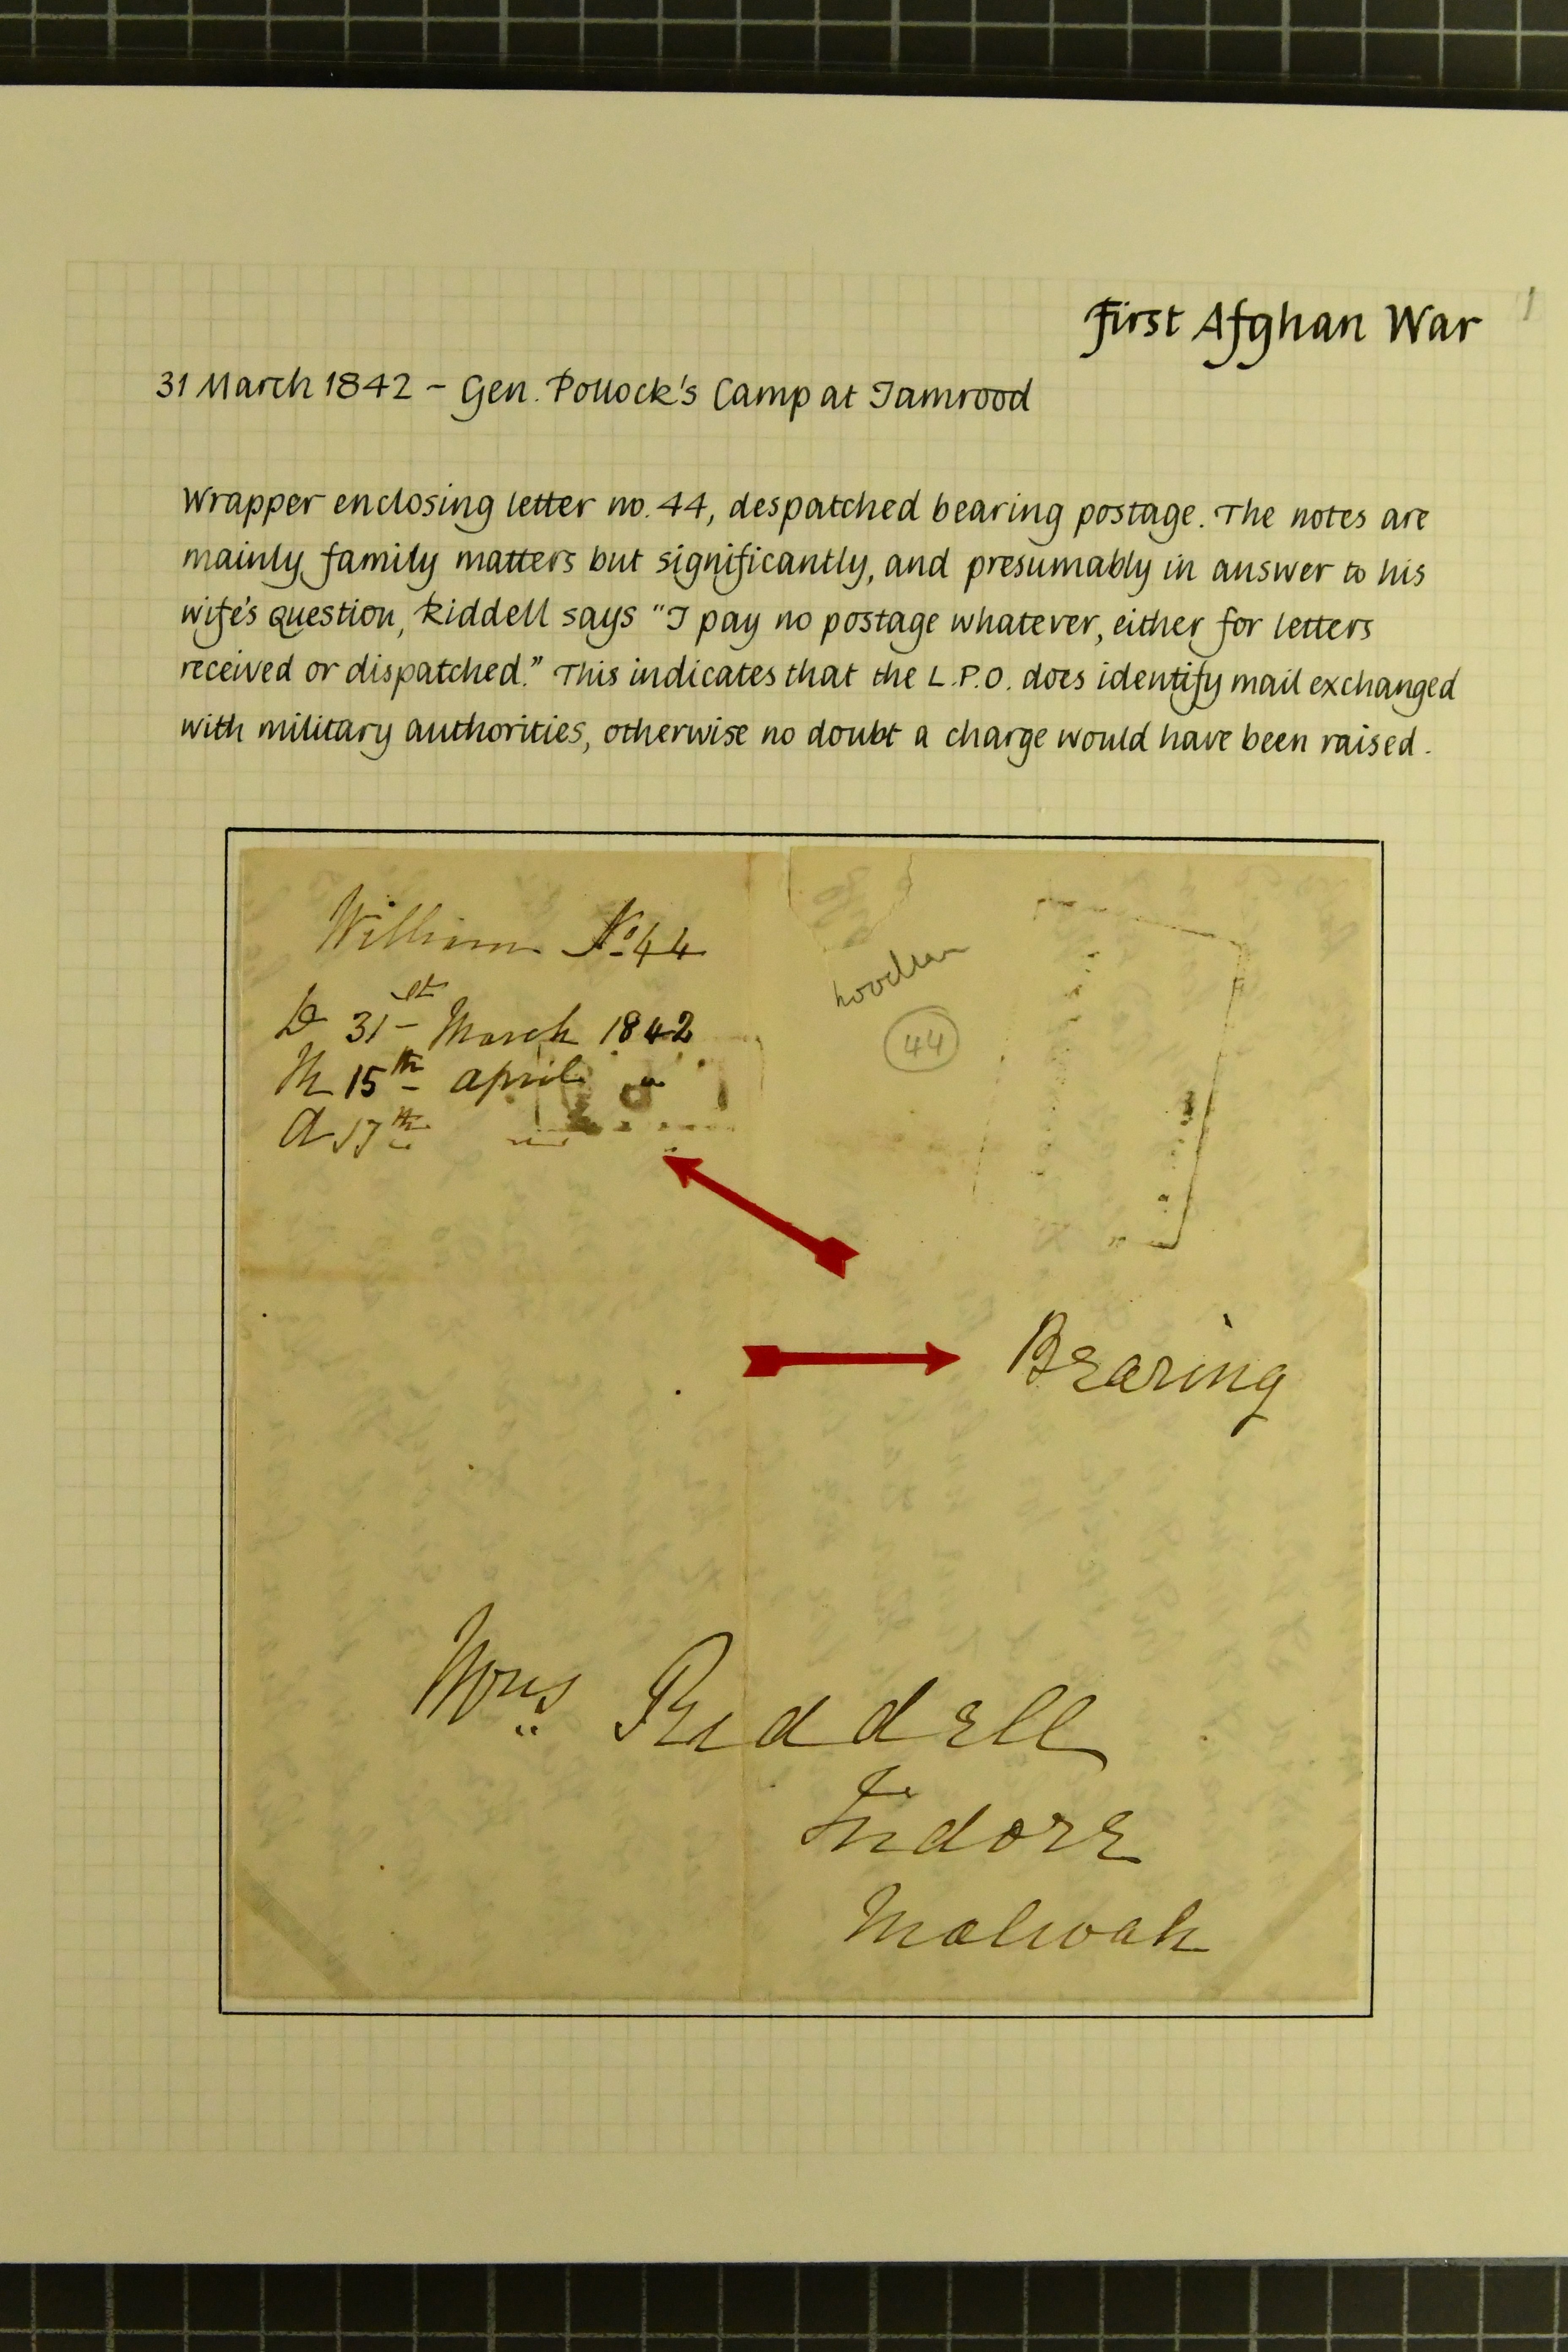 First Afghan War
31 March 1842 – Gen. Pollock's Camp at Jamrood
Wrapper enclosing letter no. 44, despatched bearing postage. The notes are
mainly family matters but significantly, and presumably in answer to his
wife's question, Riddell says "I pay no postage whatever, either for letters
received or dispatched." This indicates that the L.P.O. does identify mail exchanged
with military authorities, otherwise no doubt a charge would have been raised.
William No. 44
D 31st March 1842
M 15th april "
A 17th
44
Bearing
Mrs Riddell
Indore
Malwah